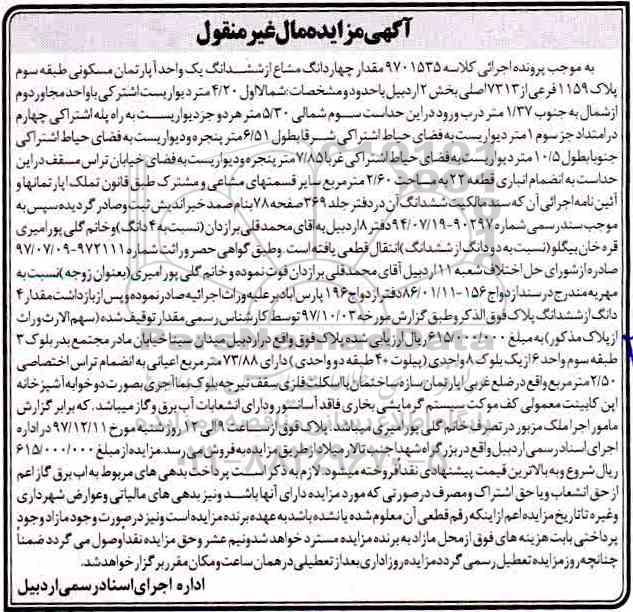 آگهی مزایده مال غیر منقول
به موجب پرونده اجرائی کلاسه ۹۷۰۱۵۳۵ مقدار چهار دانگ مشاع از ششدانگ یک واحد آپارتمان مسکونی طبقه سوم
پلاک ۱۱۵۹ فرعی از ۷۳۱۳ اصلی بخش ۲ اردبیل با حدود و مشخصات: شمالا اول ۴/۲۰ متر دیواریست اشتراکی با واحد مجاور دوم
از شمال به جنوب ۱/۳۷ متر درب ورود در این حد است سوم شمالی ۵/۳۰ متر هر دو جزء دیواریست به راه پله اشتراکی چهارم
در امتداد جز سوم ۱ متر دیواریست به فضای حیاط اشتراکی شرقا بطول ۶/۵۱ متر پنجره و دیواریست به فضای حیاط اشتراکی
جنوبا بطول ۱۰/۵ متر دیواریست به فضای حیاط اشتراکی غربا ۷/۸۵ متر پنجره و دیواریست به فضای خیابان تراس مسقف در این
حد است به انضمام انباری قطعه ۲۲ به مساحت ۲/۶۰ متر مربع سایر قسمتهای مشاعی و مشترک طبق قانون تملک اپارتمانها و
آئین نامه اجرائی آن که سند مالکیت ششدانگ آن در دفتر جلد ۳۶۹ صفحه ۷۸ بنام صمد خیراندیش ثبت و صادر گردیده سپس به
موجب سند رسمی شماره ۹۰۲۹۷-۹۴/۰۷/۱۹ دفتر ۸ اردبیل به اقای محمدقلی برازدان (نسبت به ۴ دانگ) و خانم گلی پور امیری
قره خان بیگلو (نسبت به دو دانگ از ششدانگ) انتقال قطعی یافته است. و طبق گواهی حصر وراثت شماره ۹۷۲۱۱۱-۹۷/۰۷/۰۹
صادره از شورای حل اختلاف شعبه ۱۱ اردبیل آقای محمدقلی برازدان فوت نموده و خانم گلی پور امیری (بعنوان زوجه) نسبت به
مهریه مندرج در سند ازدواج ۱۵۶-۸۶/۰۱/۱۱ دفتر ازدواج ۱۹۶ پارس آباد بر علیه وراث اجرائیه صادر نموده و پس از بازداشت مقدار ۴
دانگ از ششدانگ پلاک فوق الذکر و طبق گزارش مورخه ۹۷/۱۰/۰۳ توسط کارشناس رسمی مقدار توقیف شده (سهم الارث وراث
از پلاک مذکور) به مبلغ ۶۱۵/۰۰۰/۰۰۰ ریال ارزیابی شده پلاک فوق واقع در اردبیل میدان سینا خیابان مادر مجتمع بدر بلوک ۳
طبقه سوم واحد ۶ از یک بلوک ۸ واحدی (پیلوت +۴ طبقه دو واحدی) دارای ۷۳/۸۸ متر مربع اعیانی به انضمام تراس اختصاصی
۲/۵۰ متر مربع واقع در ضلع غربی اپارتمان سازه ساختمان با اسکلت فلزی سقف تیرچه بلوک نما آجری بصورت دو خوابه آشپزخانه
اپن کابینت معمولی کف موکت سیستم گرمایشی بخاری فاقد آسانسور و دارای انشعابات آب برق و گاز میباشد. که برابر گزارش
مامور اجرا ملک مزبور در تصرف خانم گلی پور امیری میباشد. پلاک فوق از ساعت ۹ الی ۱۲ روز شنبه مورخ ۹۷/۱۲/۱۱ در اداره
اجرای اسناد رسمی اردبیل واقع در بزرگراه شهدا جنب تالار میلاد از طریق مزایده به فروش می رسد. مزایده از مبلغ ۶۱۵/۰۰۰/۰۰۰
ریال شروع و به بالاترین قیمت پیشنهادی نقدا فروخته میشود. لازم به ذکر است پرداخت بدهی های مربوط به اب برق گاز اعم
از حق انشعاب و یا حق اشتراک و مصرف در صورتی که مورد مزایده دارای آنها باشد و نیز بدهی های مالیاتی و عوارض شهرداری
و غیره تا تاریخ مزایده اعم از اینکه رقم قطعی آن معلوم شده یا نشده باشد به عهده برنده مزایده است و نیز در صورت وجود مازاد وجوه
پرداختی بابت هزینه های فوق از محل مازاد به برنده مزایده مسترد خواهد شد و نیم عشر و حق مزایده نقدا وصول می گردد ضمناً
چنانچه روز مزایده تعطیل رسمی گردد مزایده روز اداری بعد از تعطیلی در همان ساعت و مکان مقرر برگزار خواهد شد.
اداره اجرای اسناد رسمی اردبیل